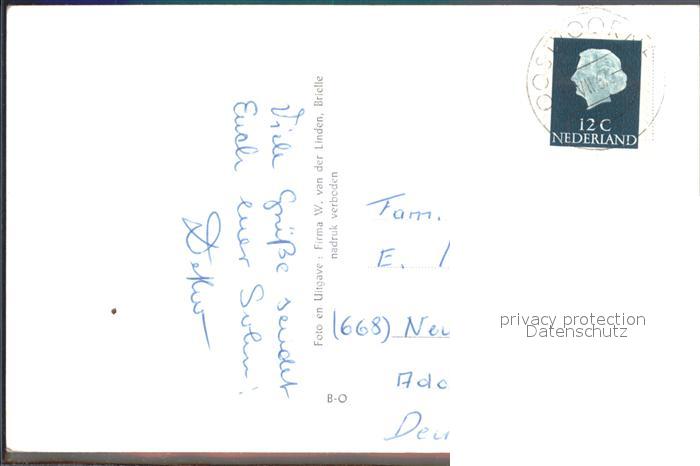 Viele Grüße sendet
Euch euer Sohn!
Detlev
Foto en Uitgave: Firma W. van der Linden, Brielle
nadruk verboden
B-O
OOSTVOORNE
12 C
NEDERLAND
Fam.
E.
(668) Neu
Ado
Deu
privacy protection
Datenschutz